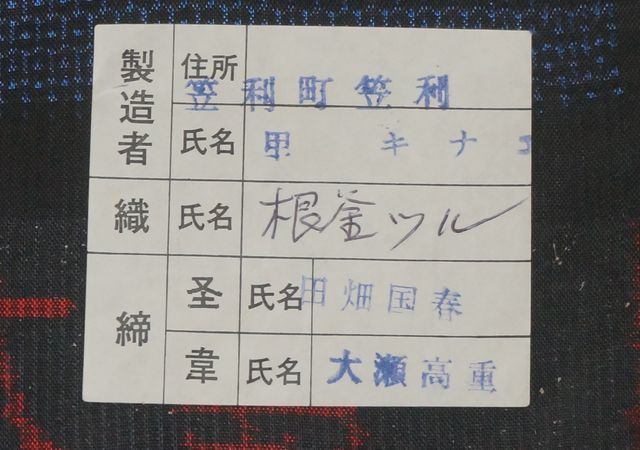 製造者 住所 笠利町笠利
氏名 里 キナエ
織 氏名 根釜ツル
締 圣 氏名 田畑国春
韋 氏名 大瀬高重